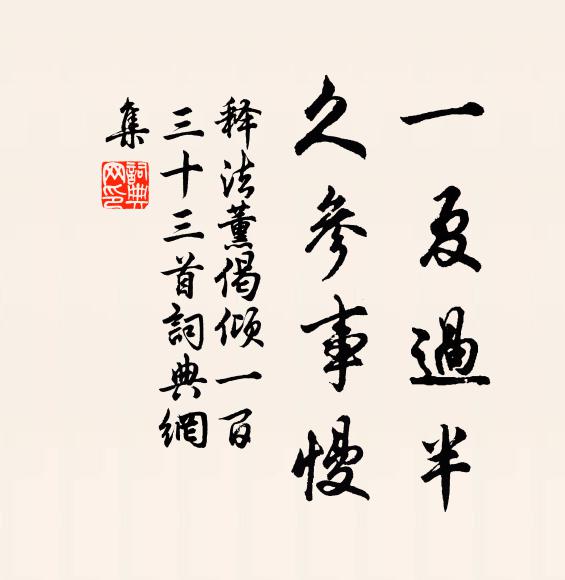 一夏過半
久參事慢
释法薰偈倾一百
三十三首詞典網
集
詞典
网印